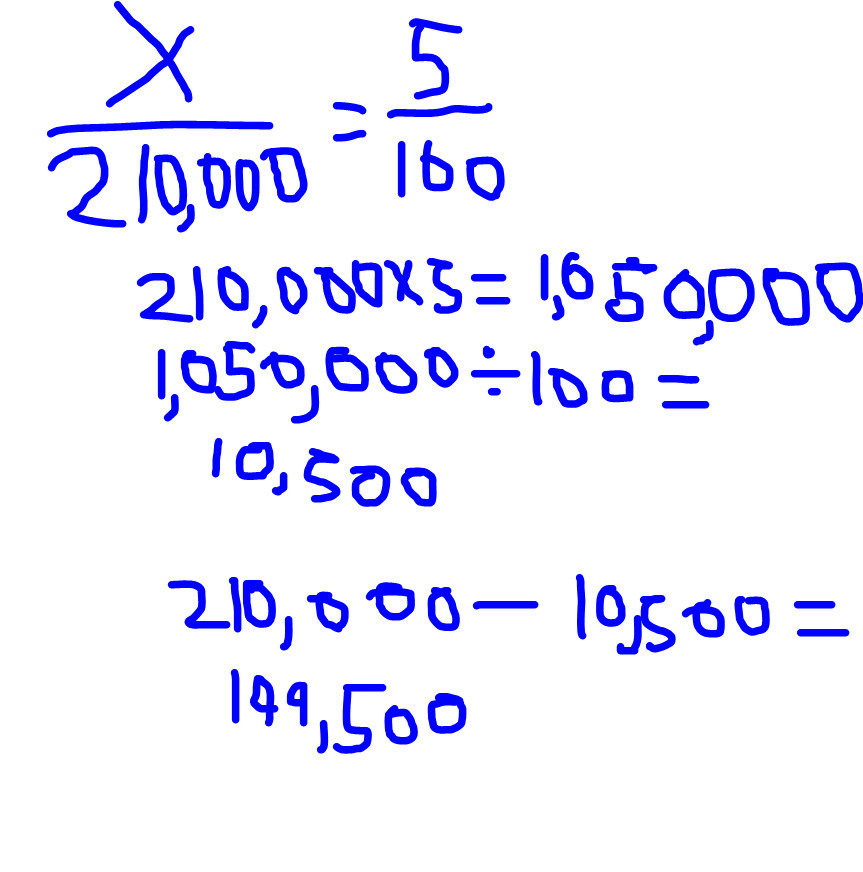 X/210,000 = 5/100
210,000x5=1,050,000
1,050,000÷100=
10,500
210,000-10,500=
199,500